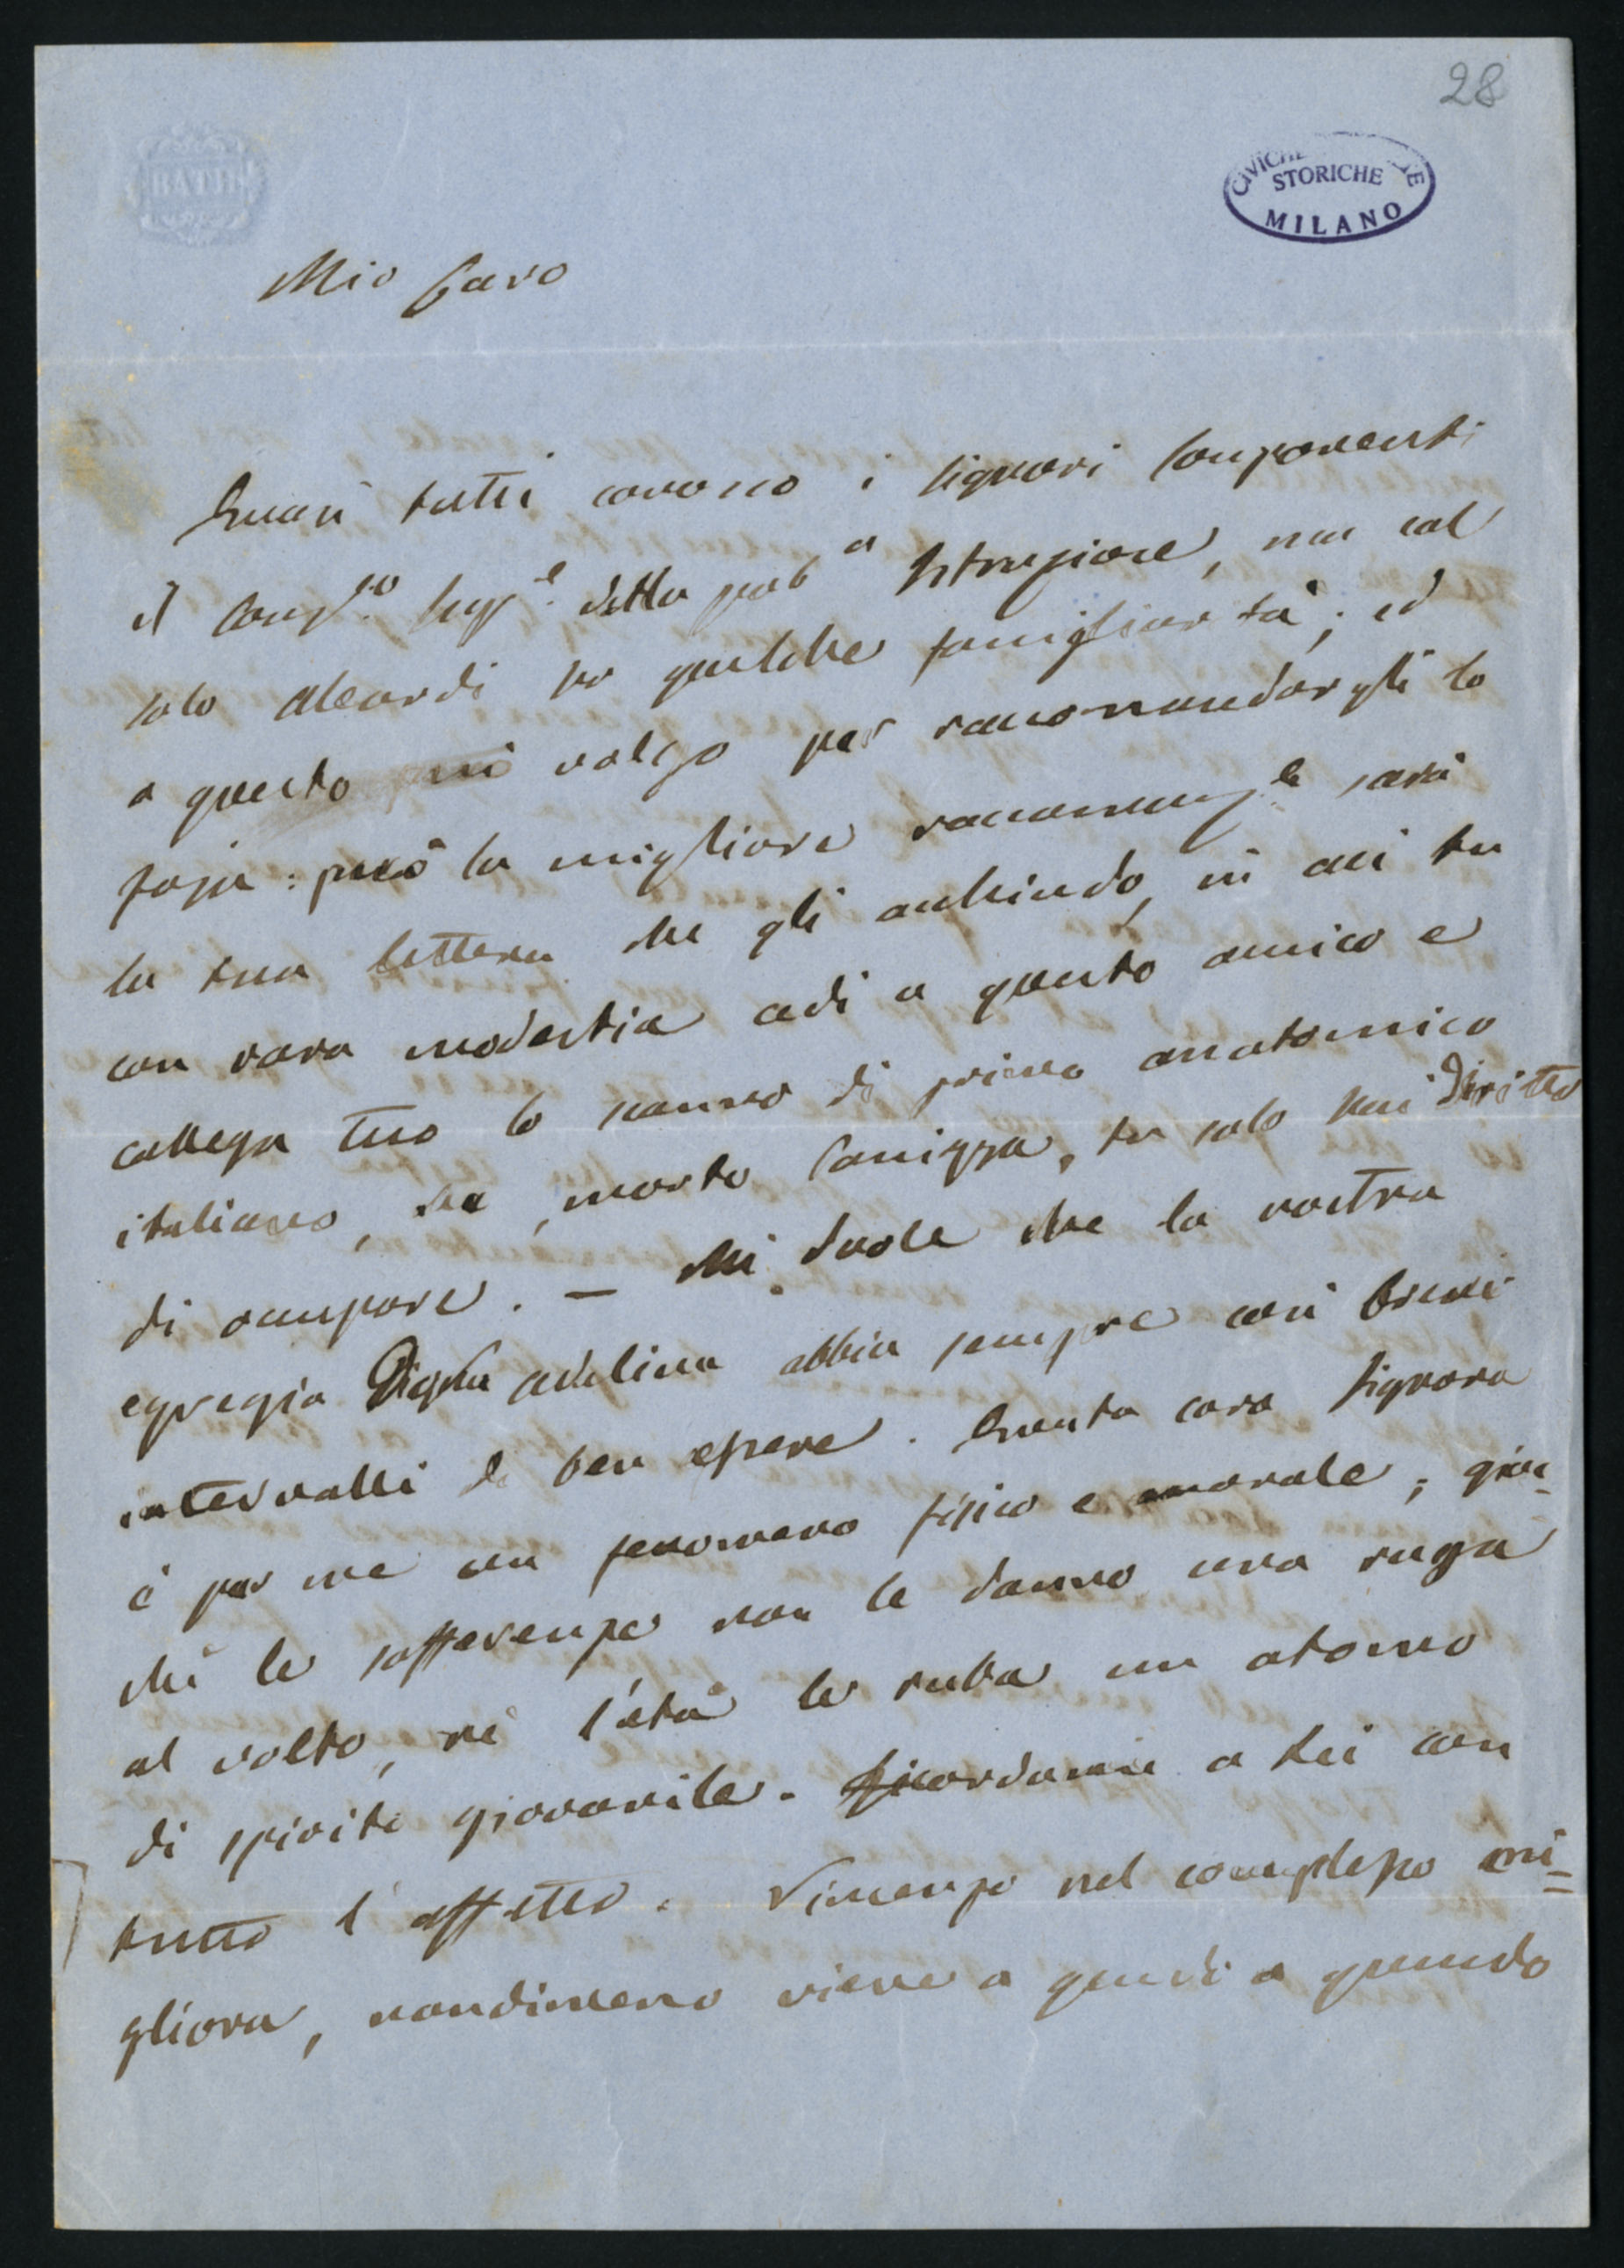 28
BATH
CIVICHE
STORICHE
MILANO
Mio Caro
Quasi tutti conosco i signori componenti
il Consio. Supe. della puba Istruzione, ma col
solo Aleardi ho qualche famigliarità; ed
a questo mi volgo per raccomandargli lo
però la migliore sarà
la tua lettera che gli acchiudo, in cui tu
con rara modestia cedi a questo amico e
collega tuo lo scanno di primo anatomico
italiano, che, morto Panizza, tu solo hai diritto
di occupare. — Mi duole che la vostra
egregia Signra Adelina abbia sempre così brevi
intervalli di ben essere. Questa cara Signora
è per me un fenomeno fisico e morale; giac-
chè le sofferenze non le danno una ruga
al volto, nè l'età le ruba un atomo
di spirito giovanile. Ricordami a Lei con
tutto l'affetto. Vincenzo nel complesso mi=
gliora, nondimeno viene a quando a quando